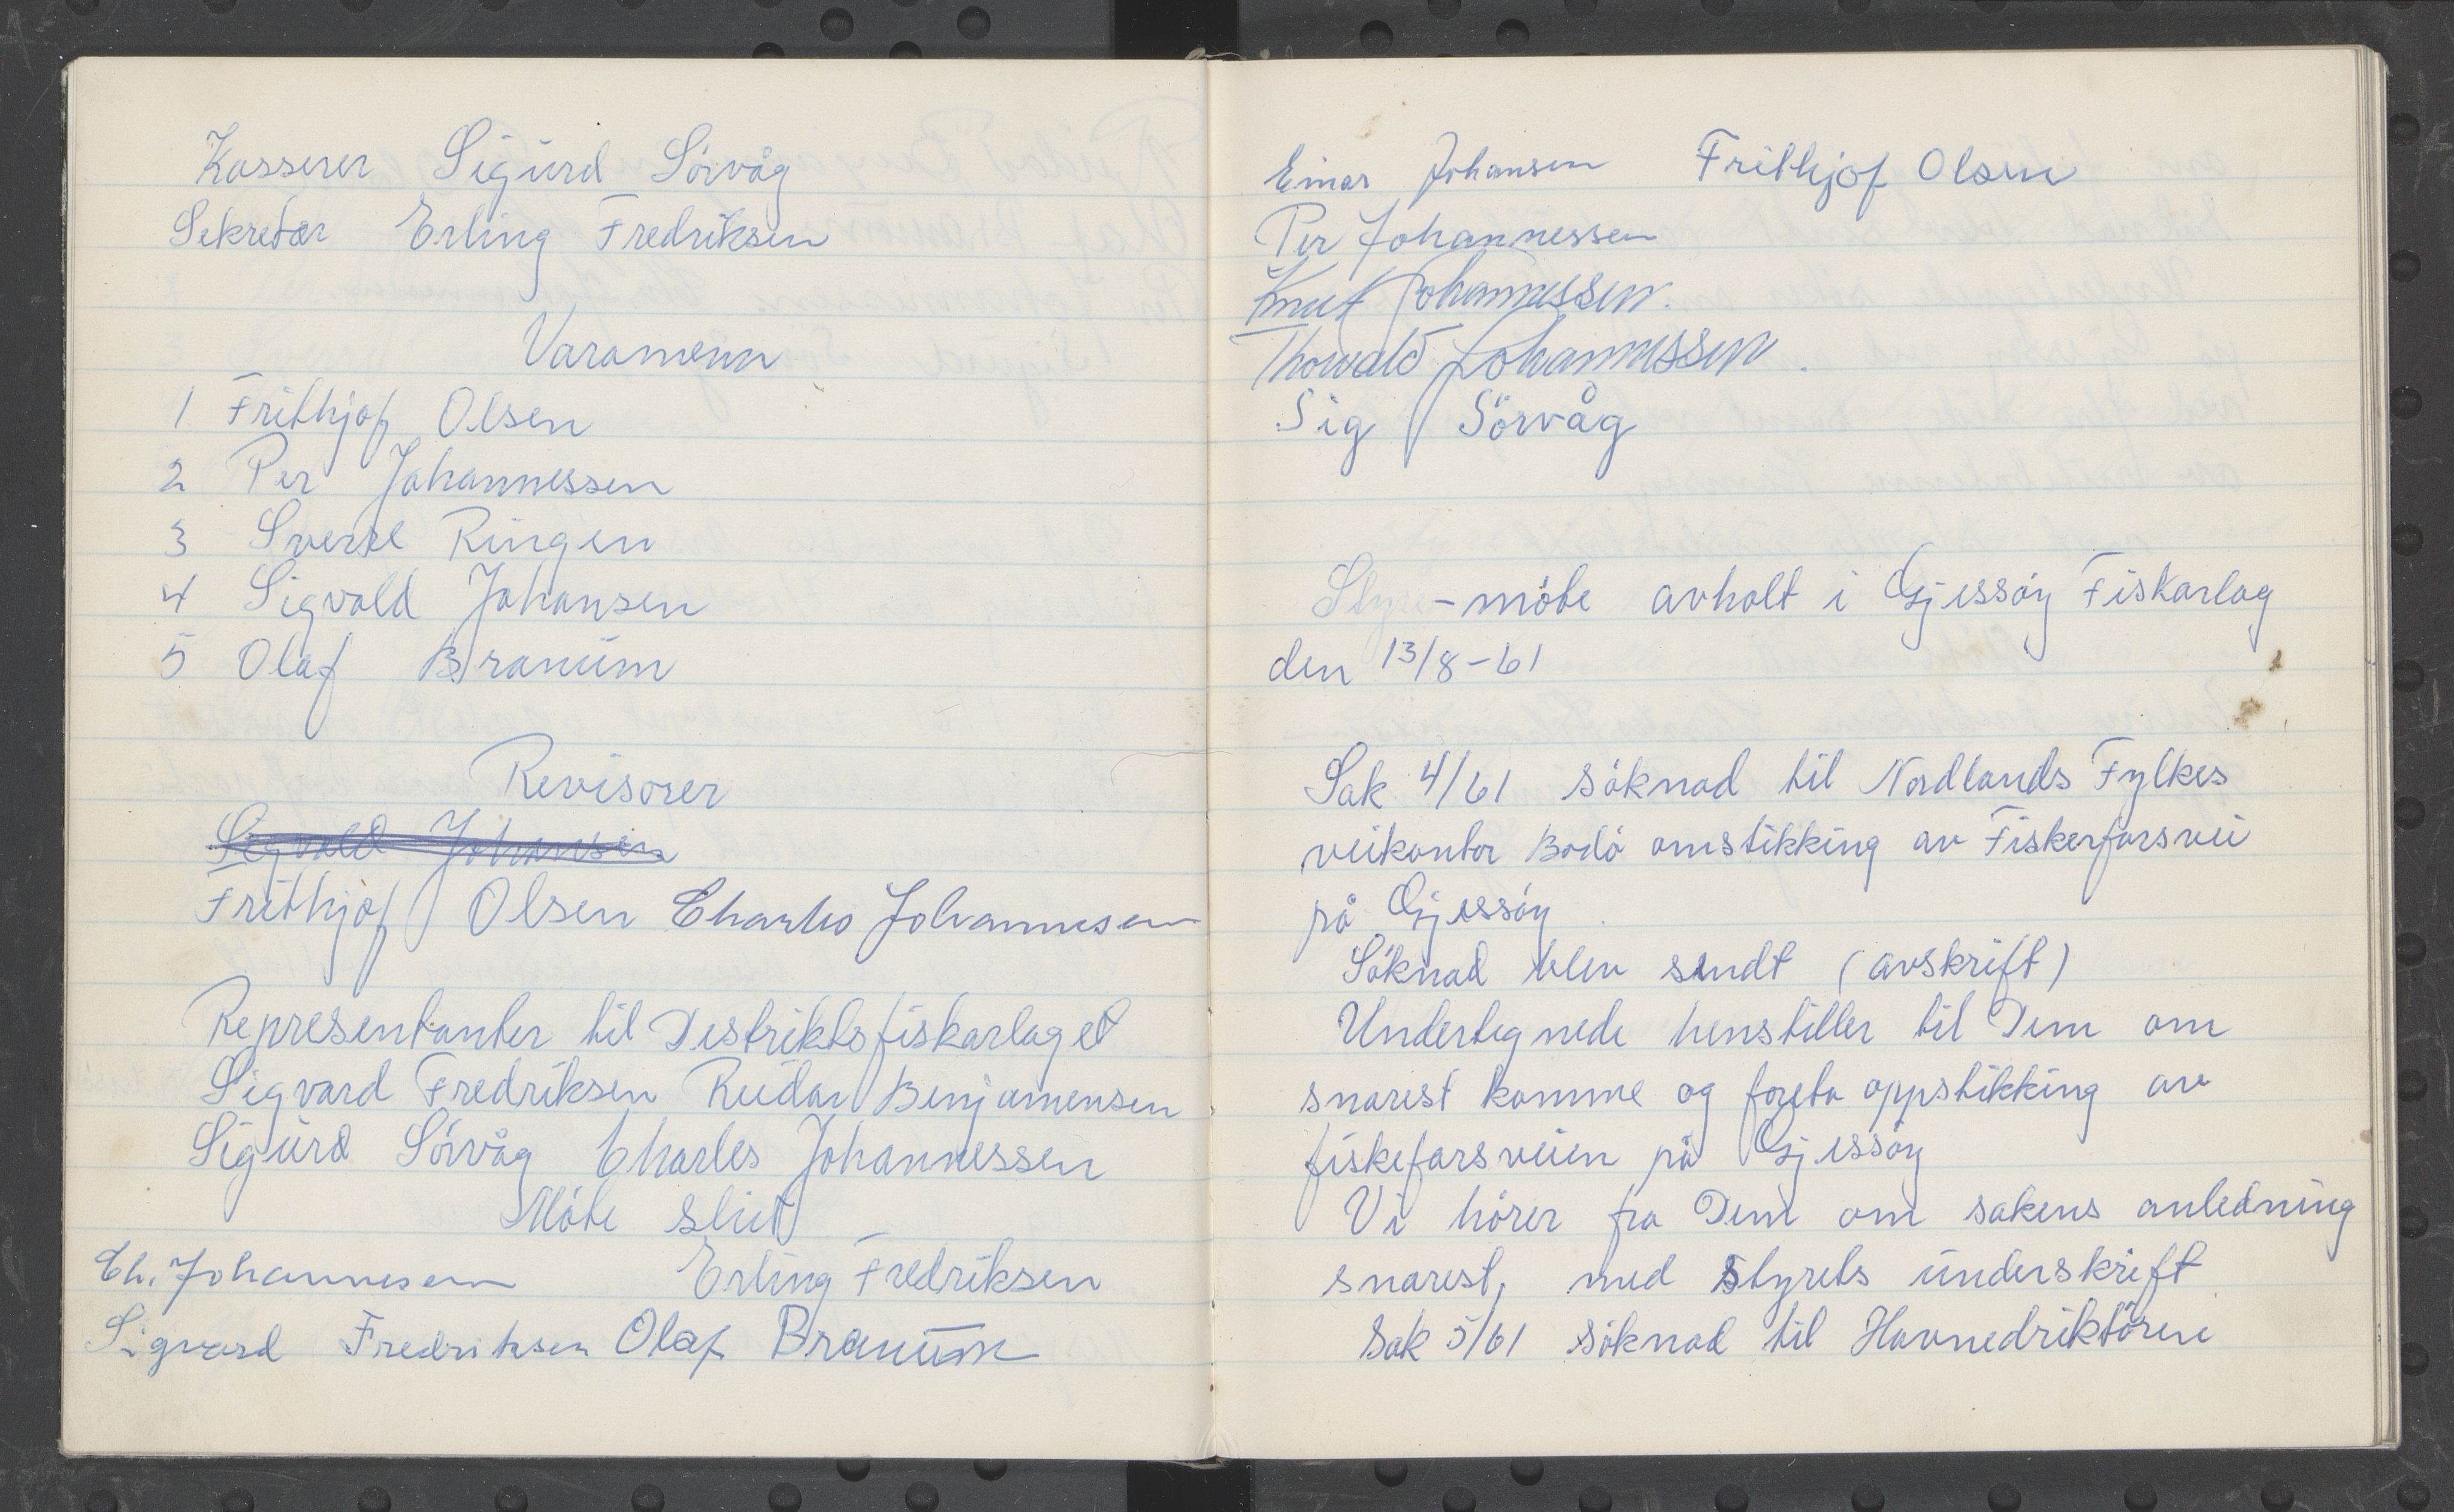 Kasserer Sigurd Sörvåg
Sekretær Erling Fredriksen
Varamenn
1 Frithjof Olsen
2 Per Johannessen
3 Sverre Ringen
4 Sigvald Johansen
5 Olaf Branum
Revisorer
Sigvald Johansen
Frithjof Olsen Charles Johannesen
Representanter til Destriktsfiskarlaget
Sigvard Fredriksen Reidar Benjamensen
Sigurd Sörvåg Charles Johannessen
Möte slut
Ch. Johannesen Erling Fredriksen
Sigvard Fredriksen Olaf Branum
Einar Johansen Frithjof Olsen
Per Johannessen
Knut Johannessen.
Thorvald Johannessen.
Sig Sörvåg
Styre-möte avholt i Gjessöy Fiskarlag
den 13/8-61
Sak 4/61 söknad til Nordlands Fylkes
veikontor Bodö omstikking av Fiskerfarsvei
på Gjessöy.
Söknad blev sendt (avskrift)
Undertegnede henstiller til Dem om
snarest komme og foreta oppstikking av
fiskefarsveien på Gjessöy
Vi hörer fra Dem om sakens anledning
snarest, med styrets underskrift
Sak 5/61 söknad til Havnedriktören